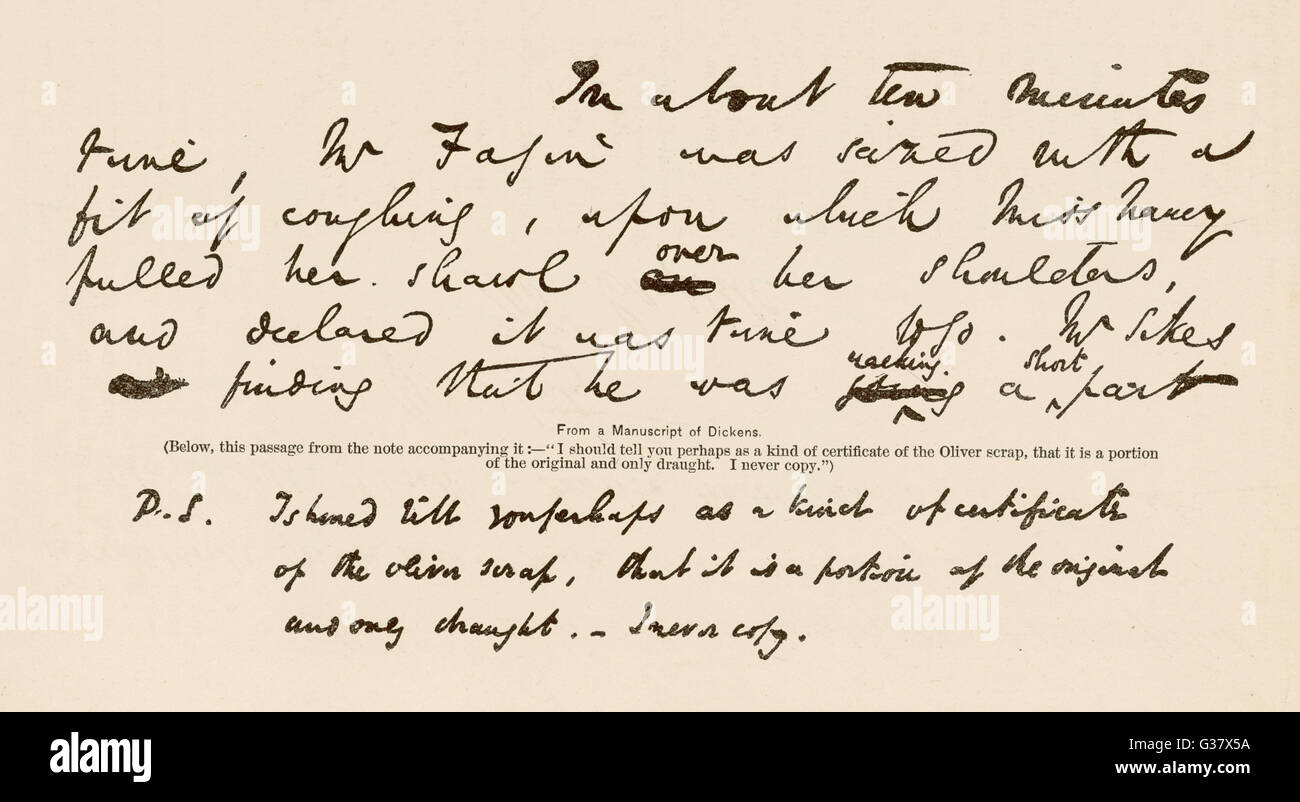 In about ten minutes
time, Mr Fagin was seized with a
fit of coughing, upon which Miss Nancy
pulled her shawl over her shoulders,
and declared it was time to go. Mr Sikes
finding that he was walking a short part
From a Manuscript of Dickens.
(Below, this passage from the note accompanying it:—“I should tell you perhaps as a kind of certificate of the Oliver scrap, that it is a portion
of the original and only draught. I never copy.”)
P.S. I should tell you perhaps as a kind of certificate
of the Oliver scrap, that it is a portion of the original
and only draught. – I never copy.
alamy
Image ID: G37X5A
www.alamy.com